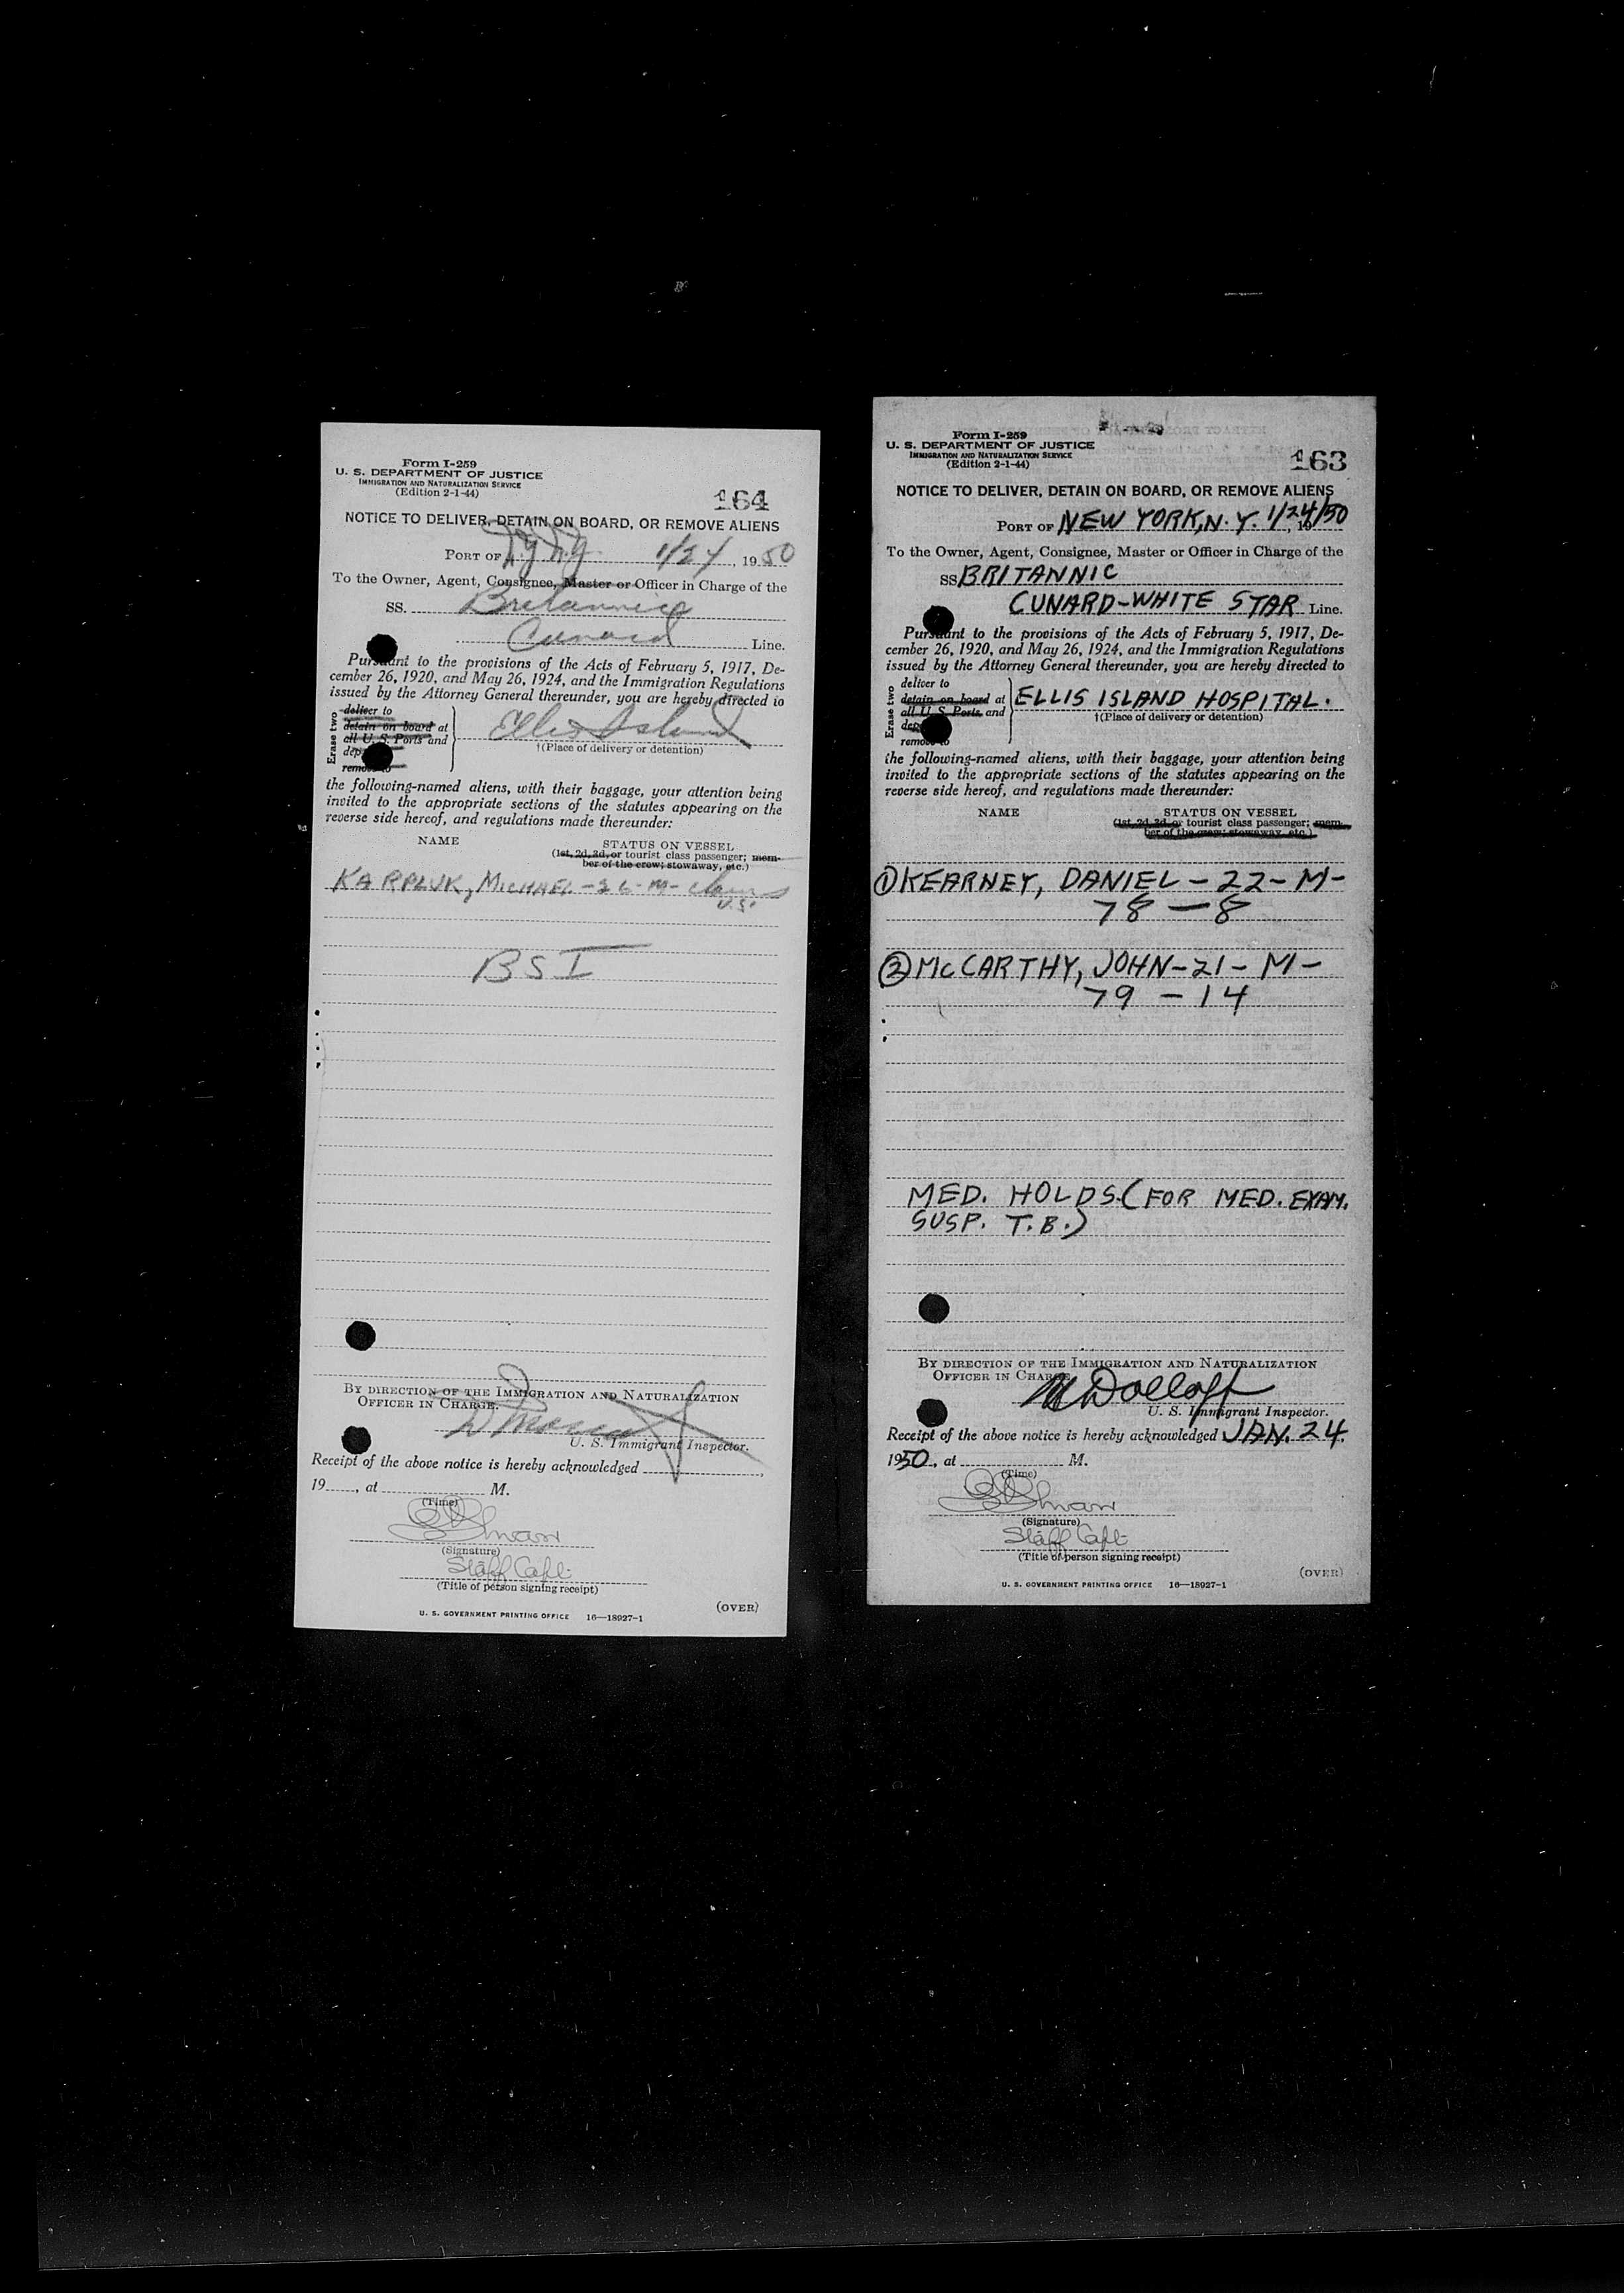 Form I-259
U. S. DEPARTMENT OF JUSTICE
IMMIGRATION AND NATURALIZATION SERVICE
(Edition 2-1-44)
164
NOTICE TO DELIVER, DETAIN ON BOARD, OR REMOVE ALIENS
PORT OF N.Y. N.Y. 1/24, 1950
To the Owner, Agent, Consignee, Master or Officer in Charge of the
SS. Britannic
Cunard Line.
Pursuant to the provisions of the Acts of February 5, 1917, De-
cember 26, 1920, and May 26, 1924, and the Immigration Regulations
issued by the Attorney General thereunder, you are hereby directed to
Erase two
deliver to
detain on board at
all U. S. Ports and
dep
remove to
Ellis Island
†(Place of delivery or detention)
the following-named aliens, with their baggage, your attention being
invited to the appropriate sections of the statutes appearing on the
reverse side hereof, and regulations made thereunder:
NAME
STATUS ON VESSEL
(1st, 2d, 3d, or tourist class passenger; mem-
ber of the crew; stowaway, etc.)
KARPLUK, MICHAEL - 26 - M - claims
U.S.
BSI
BY DIRECTION OF THE IMMIGRATION AND NATURALIZATION
OFFICER IN CHARGE.
U. S. Immigrant Inspector.
Receipt of the above notice is hereby acknowledged
19 , at M.
(Time)
(Signature)
Staff Capt.
(Title of person signing receipt)
(OVER)
U. S. GOVERNMENT PRINTING OFFICE 16—18927-1
Form I-259
U. S. DEPARTMENT OF JUSTICE
IMMIGRATION AND NATURALIZATION SERVICE
(Edition 2-1-44)
163
NOTICE TO DELIVER, DETAIN ON BOARD, OR REMOVE ALIENS
PORT OF NEW YORK, N.Y. 1/24/50
To the Owner, Agent, Consignee, Master or Officer in Charge of the
SS BRITANNIC
CUNARD-WHITE STAR Line.
Pursuant to the provisions of the Acts of February 5, 1917, De-
cember 26, 1920, and May 26, 1924, and the Immigration Regulations
issued by the Attorney General thereunder, you are hereby directed to
Erase two
deliver to
detain on board at
all U. S. Ports and
dep
remove to
ELLIS ISLAND HOSPITAL.
†(Place of delivery or detention)
the following-named aliens, with their baggage, your attention being
invited to the appropriate sections of the statutes appearing on the
reverse side hereof, and regulations made thereunder:
NAME
STATUS ON VESSEL
(1st, 2d, 3d, or tourist class passenger; mem-
ber of the crew; stowaway, etc.)
① KEARNEY, DANIEL - 22 - M -
78 - 8
② McCARTHY, JOHN - 21 - M -
79 - 14
MED. HOLDS. (FOR MED. EXAM.
SUSP. T.B.)
BY DIRECTION OF THE IMMIGRATION AND NATURALIZATION
OFFICER IN CHARGE.
M Dolloff
U. S. Immigrant Inspector.
Receipt of the above notice is hereby acknowledged JAN. 24,
1950, at M.
(Time)
(Signature)
Staff Capt.
(Title of person signing receipt)
(OVER)
U. S. GOVERNMENT PRINTING OFFICE 16—18927-1